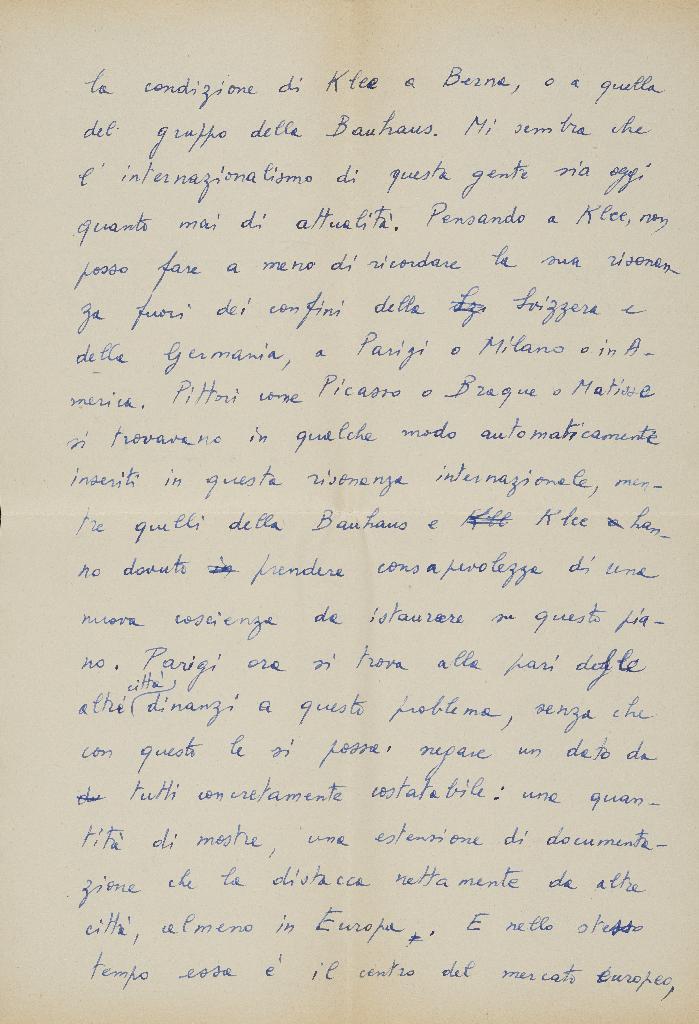 la condizione di Klee a Berna, o a quella
del gruppo della Bauhaus. Mi sembra che
l'internazionalismo di questa gente sia oggi
quanto mai di attualità. Pensando a Klee, non
posso fare a meno di ricordare la sua risonan-
za fuori dei confini della Svizzera e
della Germania, a Parigi o Milano o in A-
merica. Pittori come Picasso o Braque o Matisse
si trovavano in qualche modo automaticamente
inseriti in questa risonanza internazionale, men-
tre quelli della Bauhaus e Klee han-
no dovuto prendere consapevolezza di una
nuova coscienza da istaurare su questo pia-
no. Parigi ora si trova alla pari delle
altre città dinanzi a questo problema, senza che
con questo le si possa negare un dato da
tutti concretamente costatabile: una quan-
tità di mostre, una estensione di documenta-
zione che la distacca nettamente da altre
città, almeno in Europa. E nello stesso
tempo essa è il centro del mercato europeo,